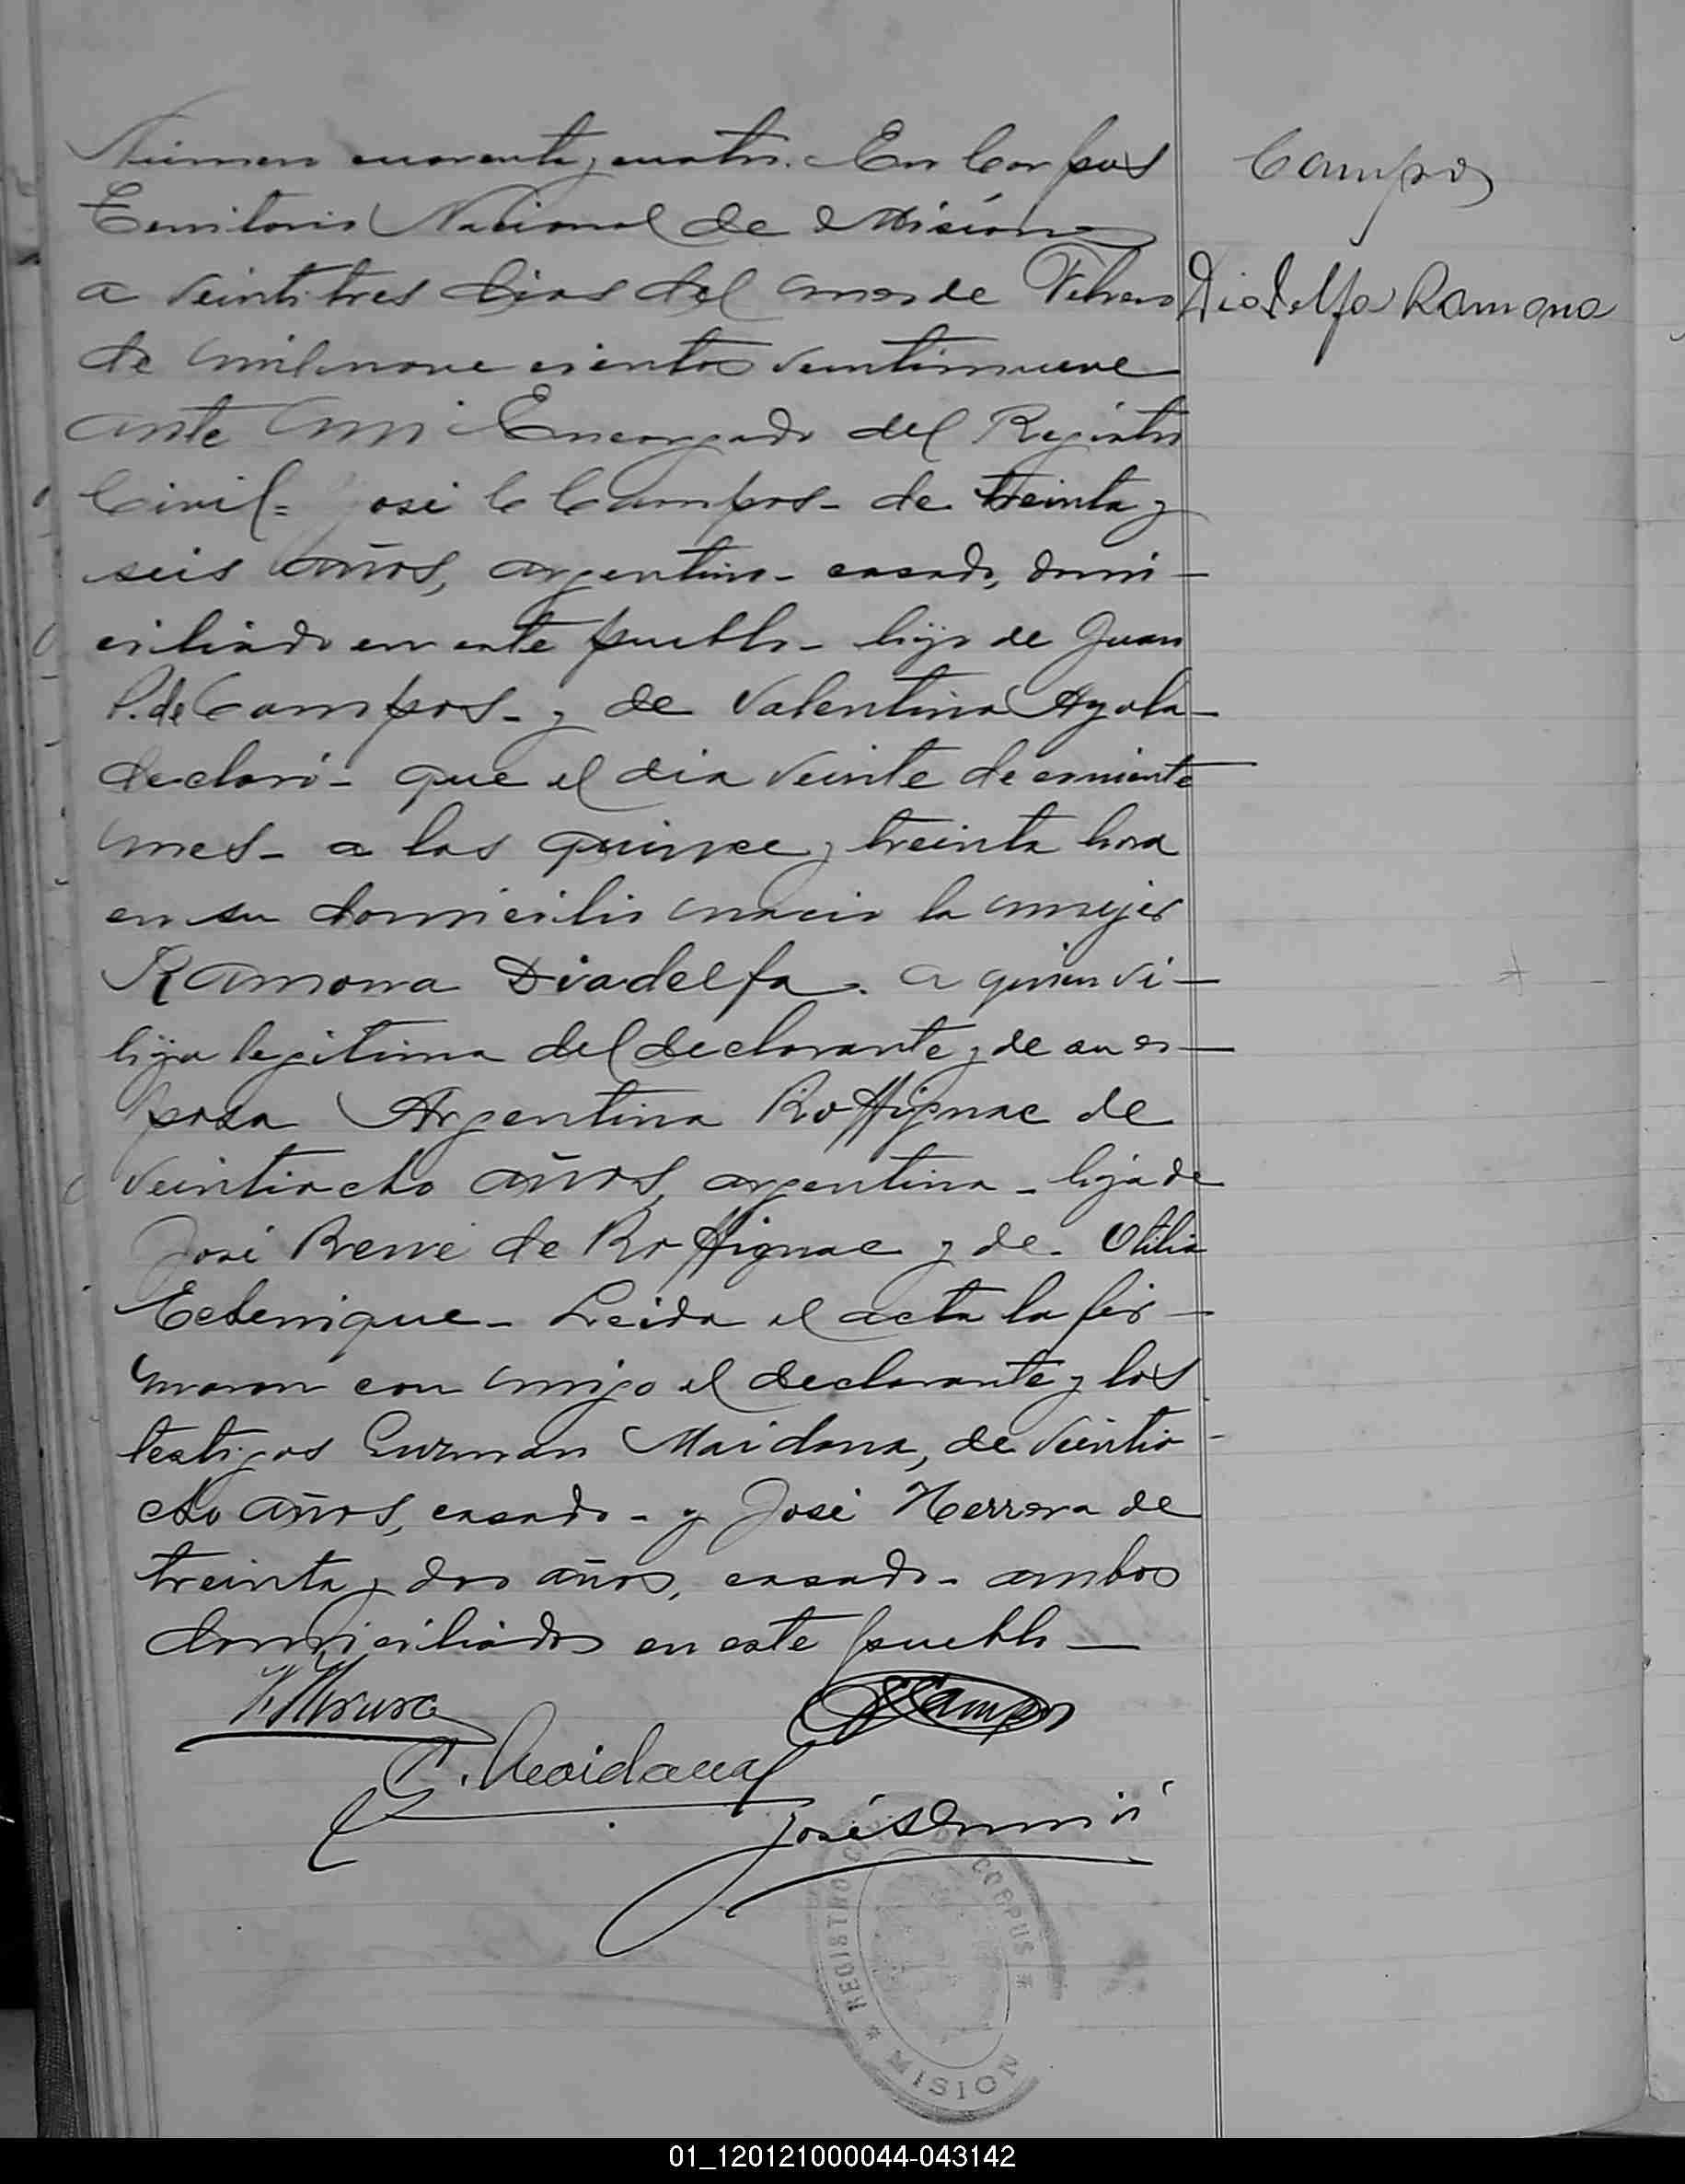 Número cuarenta y cuatro. En Corpus
Campos
Territorio Nacional de Misiones
a veintitres dias del mes de Febrero
Diadelfa Ramona
de mil nove cientos veintinueve
ante mi Encargado del Registro
Civil = José C Campos - de treinta y
seis años, argentino - casado, domi-
ciliado en este pueblo - hijo de Juan
P. de Campos - y de Valentina Ayala -
declaró - que el dia veinte de corriente
mes - a las quince y treinta hora
en su domicilio nacio la mujer
Ramona Diadelfa. a quien vi -
hija legitima del declarante y de su es-
posa Argentina Roffignac de
veintiocho años, argentina - hija de
José Rene de Roffignac y de Otilia
Echenique - Leida el acta la fir-
maron con migo el declarante y los
testigos Guzman Maidana, de veintio-
cho años, casado - y José Herrera de
treinta y dos años, casado - ambos
domiciliados en este pueblo -
Campos
G. Maidana
José
REGISTRO CIVIL DE CORPUS * MISION
01_120121000044-043142